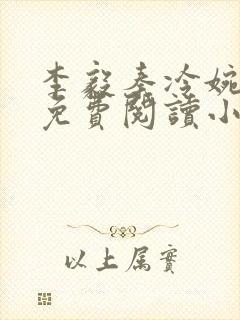 李毅秦冷婉
免費閱讀小
以上属實